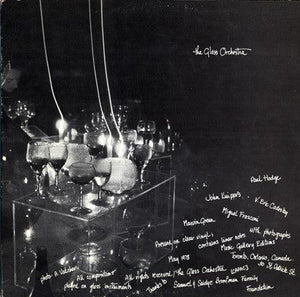 the Glass Orchestra
Paul Hodge
John Kuipers
V. Eric Cadesky
Miguel Frasconi
Marvin Green
Pressed on clear vinyl,
contains liner notes with photographs
May 1978
Music Gallery Editions
Toronto, Ontario, Canada
30 St. Patrick St.
All compositions
All rights reserved, the Glass Orchestra
played on glass instruments
Thanks to Samuel & Saidye Bronfman Family
Foundation